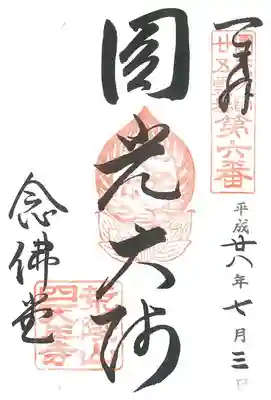 奉拝
第六番
平成廿八年七月三日
圓光大師
念佛堂
荒陵山
四天王寺